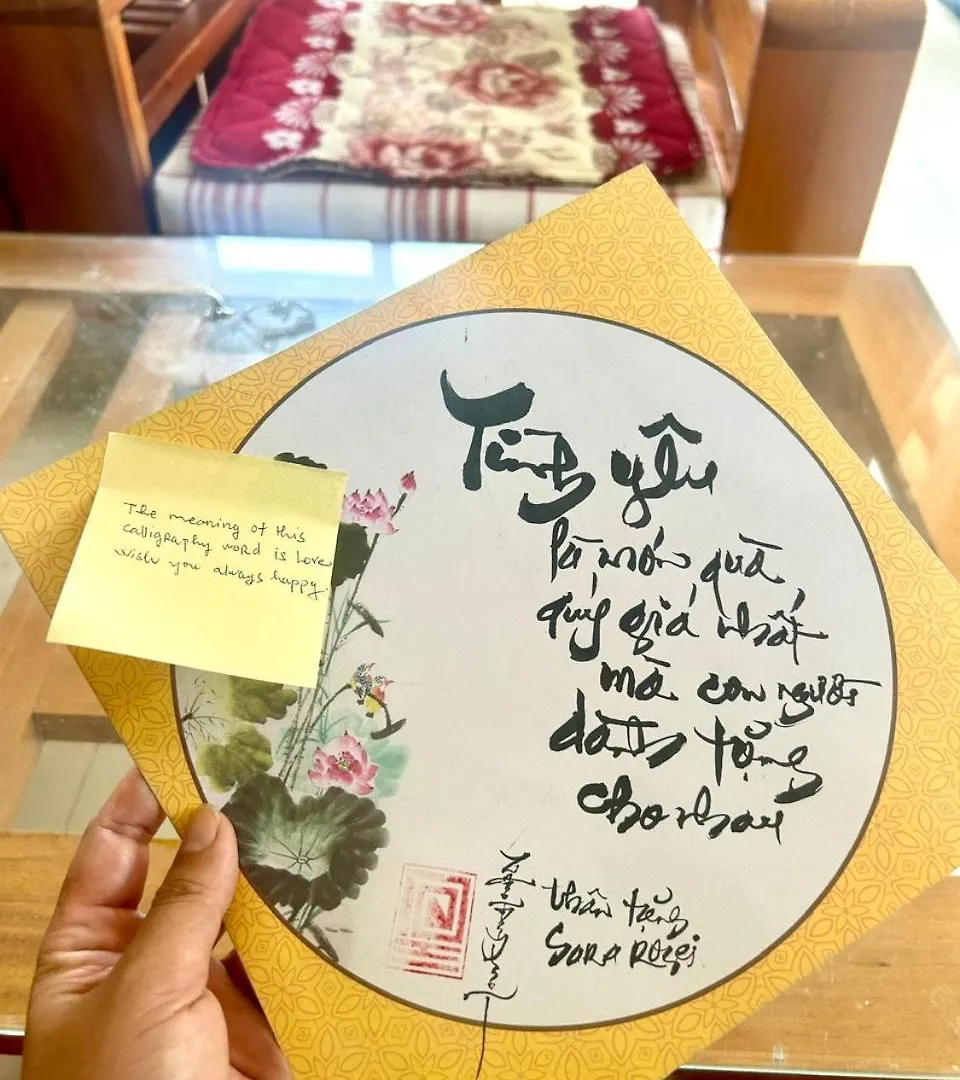 The meaning of this
calligraphy word is Love
wish you always happy.
Tình yêu
là món quà
quý giá nhất
mà con người
dành tặng
cho nhau
thân tặng
SORA